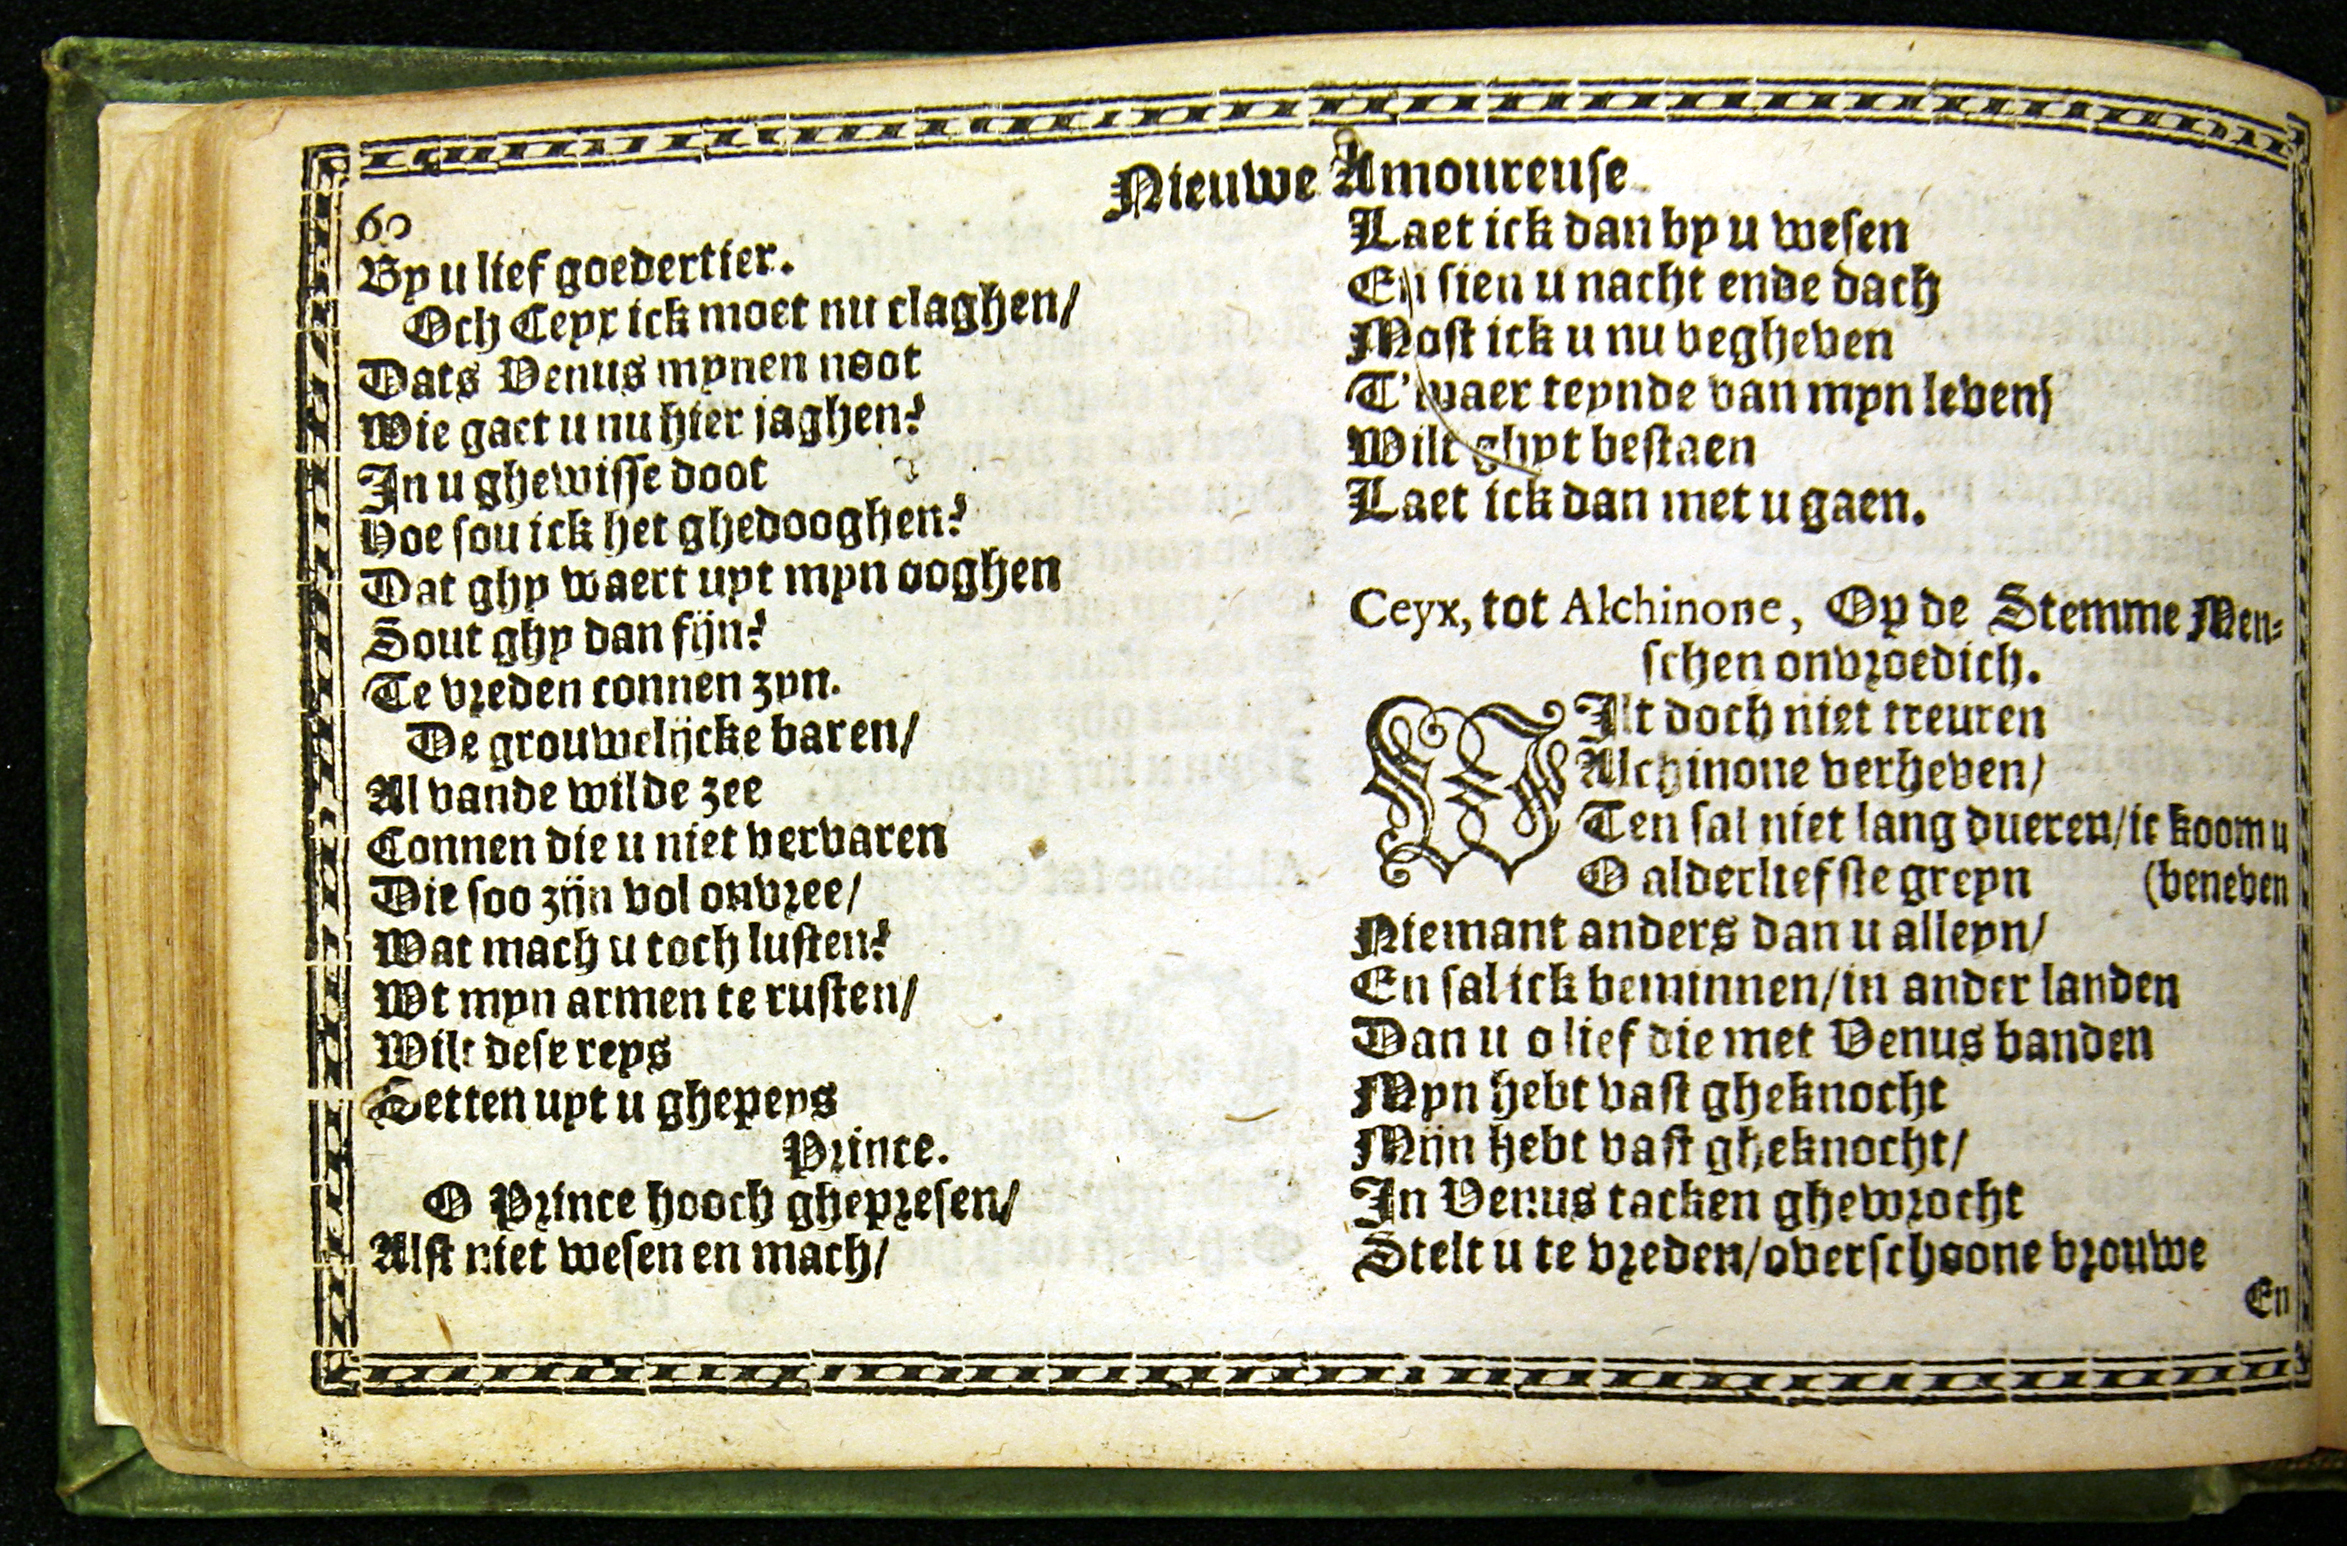 60
Nieuwe Amoureuse
By u lief goedertier.
Och Ceyx ick moet nu claghen/
Dats Venus mynen noot
Wie gaet u nu hier jaghen?
In u ghewisse doot
Hoe sou ick het ghedooghen?
Dat ghy waert uyt myn ooghen
Sout ghy dan fijn?
Te vreden connen zyn.
De grouwelijcke baren/
Al vande wilde zee
Connen die u niet vervaren
Die soo zijn vol onvree/
Wat mach u toch lusten?
Wt myn armen te rusten/
Wilt dese reys
Setten uyt u ghepeys
Prince.
O Prince hooch ghepresen/
Alst niet wesen en mach/
Laet ick dan by u wesen
En sien u nacht ende dach
Most ick u nu begheven
T'waer teynde van myn leven/
Wilt ghyt bestaen
Laet ick dan met u gaen.
Ceyx, tot Alchinone, Op de Stemme Men=
schen onvroedich.
WIlt doch niet treuren
Alchinone verheven/
Ten sal niet lang dueren/ic koom u
O alderliefste greyn (beneven
Niemant anders dan u alleyn/
En sal ick beminnen/in ander landen
Dan u o lief die met Venus banden
Myn hebt vast gheknocht
Mijn hebt vast gheknocht/
In Venus tacken ghewrocht
Stelt u te vreden/overschoone vrouwe
En